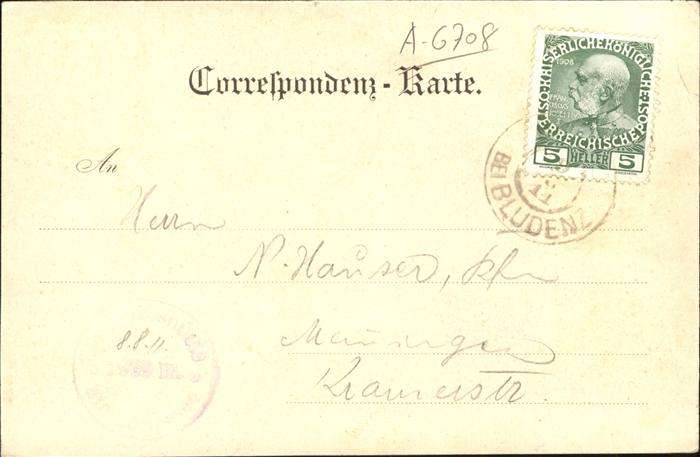 A-6708
Correspondenz-Karte.
KAISERLICHE KÖNIGLICHE
ÖSTERREICHISCHE POST
1908
5 HELLER 5
An
11
BEI BLUDENZ
Herrn
N. Hauser,
8.8.11.
Kramerstr.